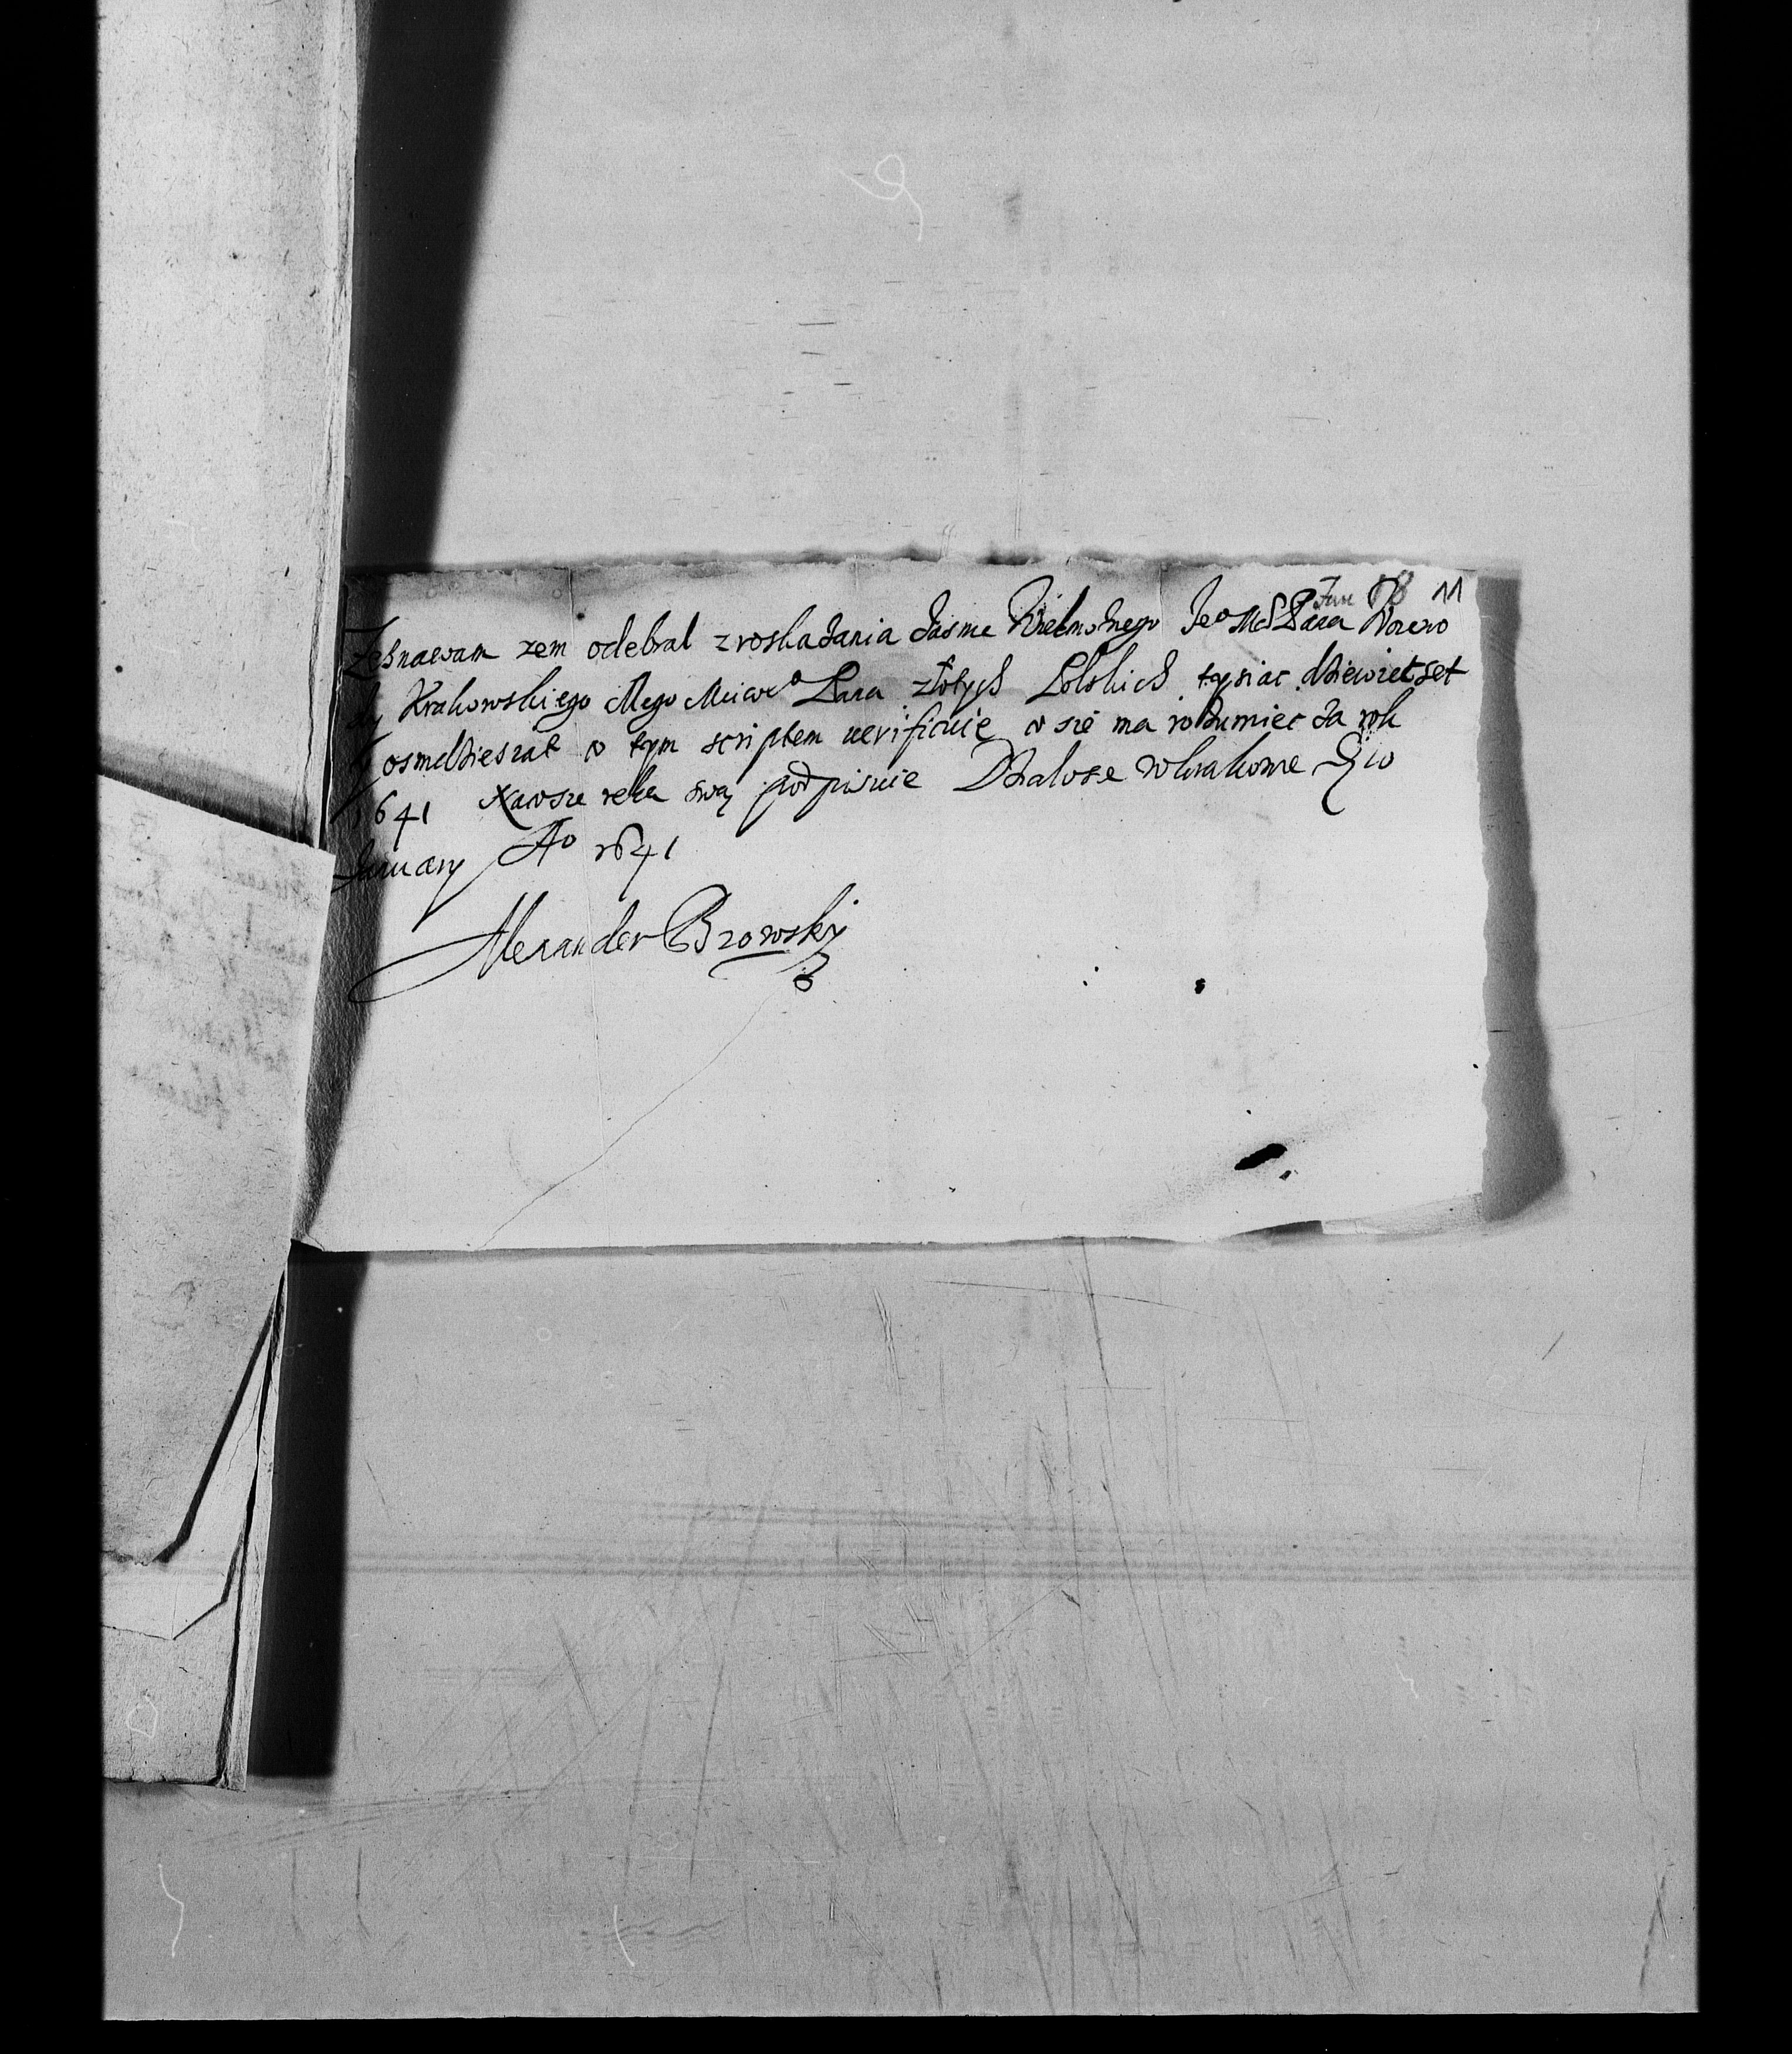 11
Zesnawam zem odebral z roskazania Jasnie Wielmoznego Jeo Mści Pana Woiewo
dy Krakowskiego Mego Mciweo Pana złotych Polskich tysiac dziewiecset
y osmdziesiat co tym scriptem verificuie co sie ma rozumiec za rok
1641 reka swą podpisuie Dzialo sie w Krakowie
January Ao 1641
Alexander Brzowsky